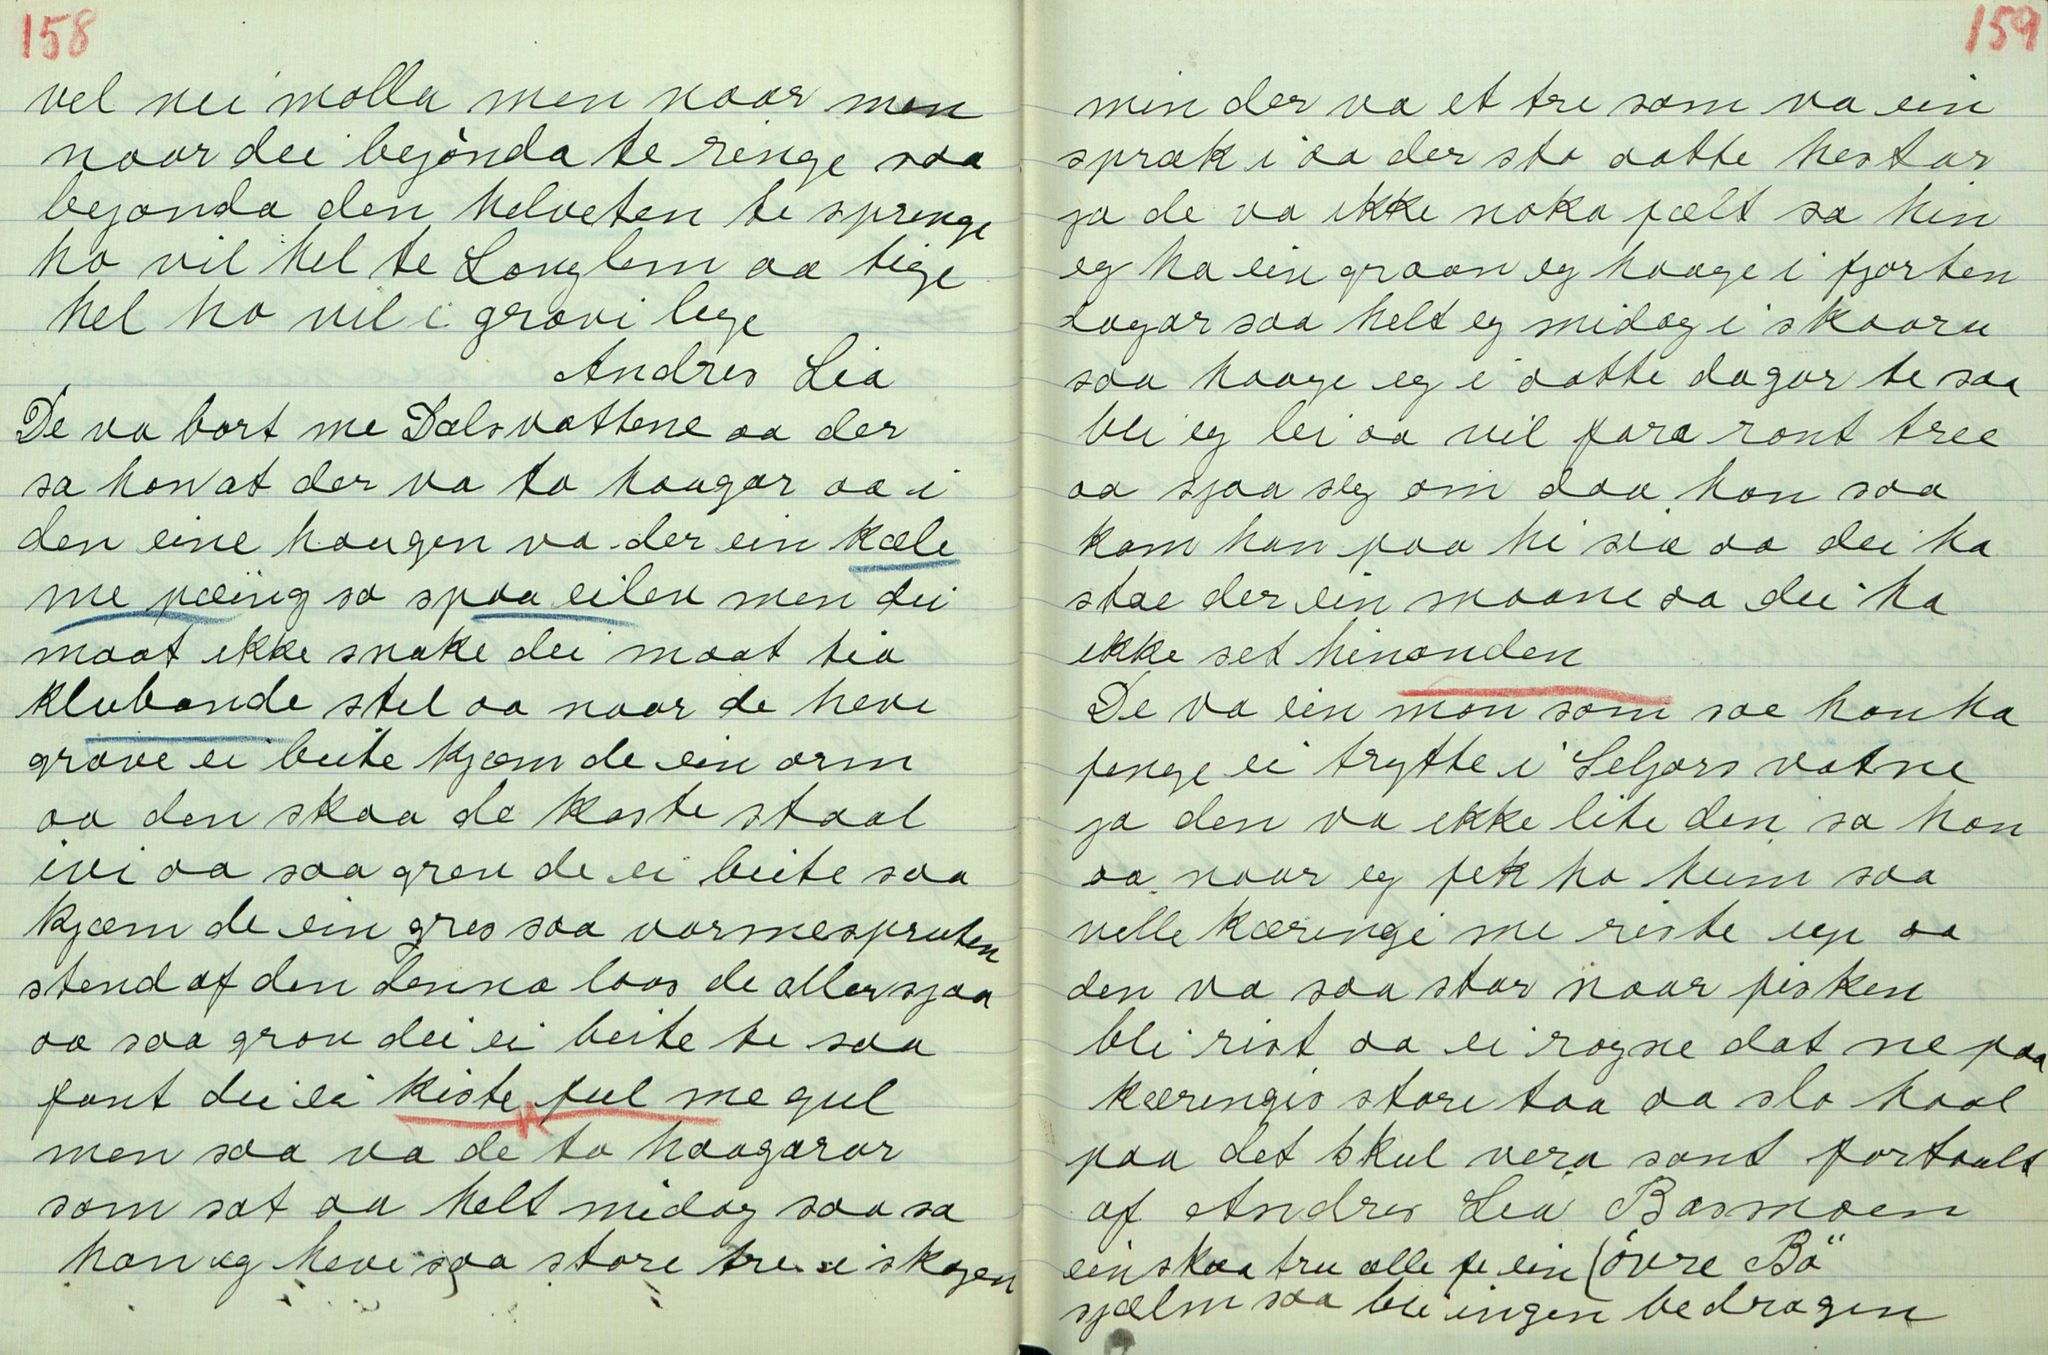 158
vel nei molla men naar men
naar dei begönda te ringe saa
begonda den helveten te springe
ho vil hel te Longlem aa tige
hel ho vil i gravi lege
Andres Lia
De va bort me Dalsvattene aa der
sa hon at der va to haugar aa i
den eine haugen va der ein kæle
me pæing so spaa eilen men dei
maat ikke snake dei maat tia
klubande stel aa naar de heve
grave ei beite kjæm de ein orm
aa den skaa de kaste staal
ivi aa saa grev de ei beite saa
kjæm de ein gres saa varmespruten
stend af den denna laas de aller sjaa
aa saa grov dei ei beite te saa
fant dei ei kiste ful me gul
men saa va de to haagarar
som sat aa helt midag saa sa
han eg heve saa store tre i skogen
159
min der va et tre som va ein
spræk i aa der sto aatte hestar
ja de va ikke noka fælt sa hin
eg ha ein graan eg haage i fjorten
dagar saa helt eg midag i skaaru
saa haage eg i aatte dagar te saa
bli eg lei aa vil fara ront tree
aa sjaa seg om daa han saa
kom han paa hi sia aa dei ha
stae der ein maane aa dei ha
ikke set hinanden
De va ein mon som sae han ha
fenge ei trytte i Seljors vatne
ja den va ikke lite den sa han
aa naar eg fek ho heim saa
velle kæringe me riste up aa
den va saa stor naar fisken
bli rist aa ei rogne dat ne paa
kæringis store taa aa slo haal
paa det skul vera sant fortaalt
af Andres Lia Basmoen
ein skaa tru alle fe ein (övre Bö
sjælm saa bli ingen bedragen